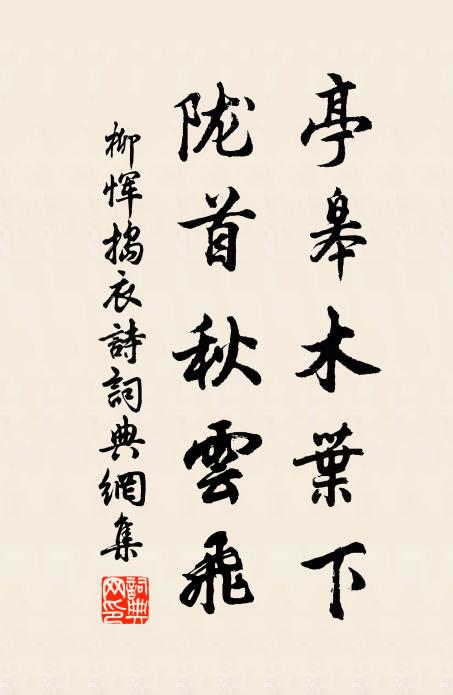 亭皋木葉下
陇首秋雲飛
柳恽搗衣詩詞典網集
詞典网印